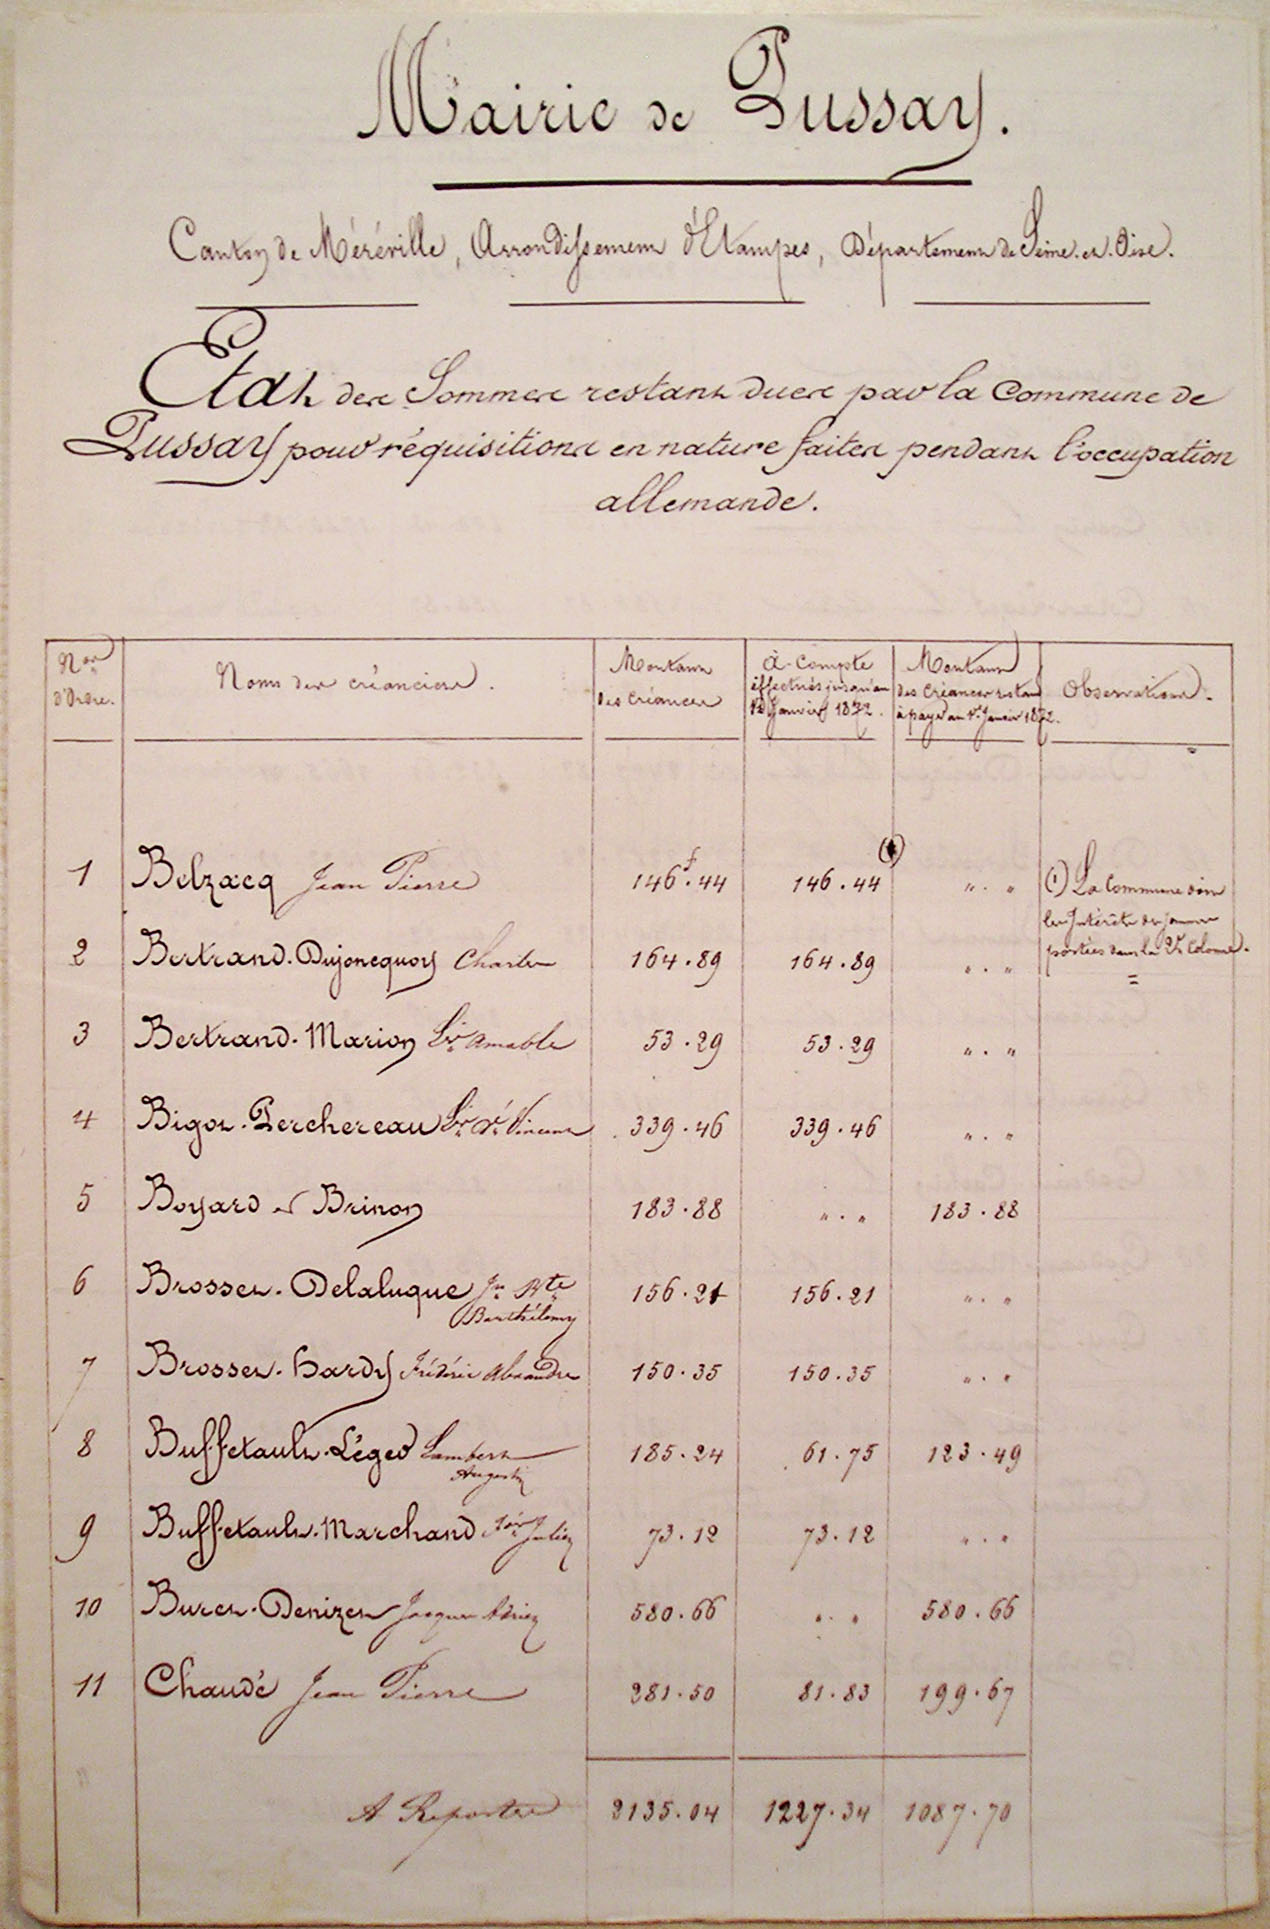 Mairie de Pussay.
Canton de Méréville, Arrondissement d'Etampes, Département de Seine-et-Oise.
Etat des Sommes restant dues par la Commune de
Pussay pour réquisitions en nature faites pendant l'occupation
allemande.
Nos d'Ordre. Noms des créanciers. Montant des Créances À-Compte effectués jusqu'au 1er Janvier 1872. Montant des Créances restant à payer au 1er Janvier 1872. Observations.
1 Belzacq Jean Pierre 146f.44 146.44 (1) " . "
(1) La Commune doit
les Intérêts des sommes
portées dans la 2e Colonne.
2 Bertrand-Dujoncquoy Charles 164.89 164.89 " . "
3 Bertrand-Marion Amable 53.29 53.29 " . "
4 Bigot-Perchereau Vincent 339.46 339.46 " . "
5 Boyard et Brinon 183.88 " . " 183.88
6 Brosset-Delaluque Jn Bte Barthélemy 156.21 156.21 " . "
7 Brosset-Hardy Frédéric Alexandre 150.35 150.35 " . "
8 Buffetault-Léger Lambert Augustin 185.24 61.75 123.49
9 Buffetault-Marchand Julien 73.12 73.12 " . "
10 Buret-Denizet Jacques Adrien 580.66 " . " 580.66
11 Chaudé Jean Pierre 281.50 81.83 199.67
A Reporter 2135.04 1227.34 1087.70